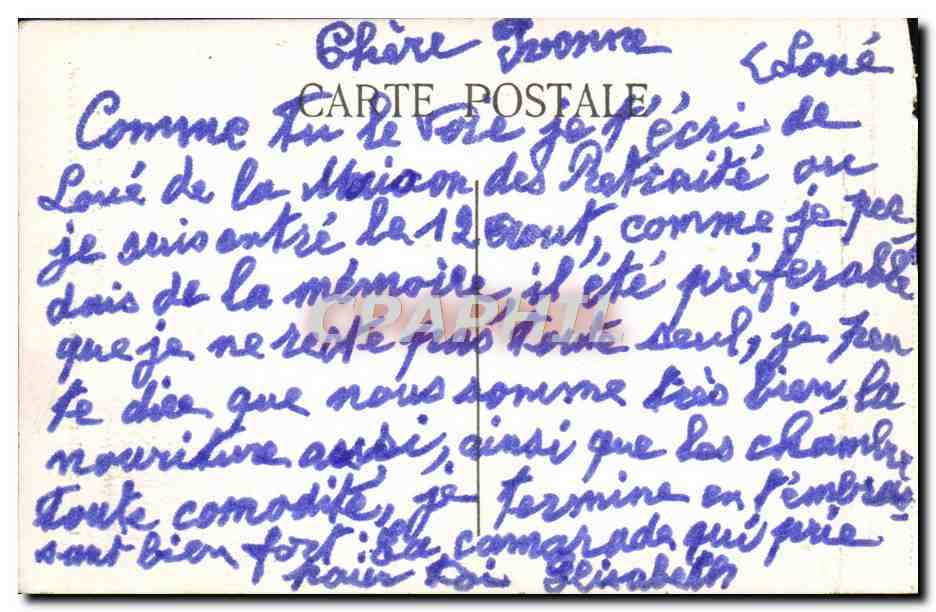 Chère Yvonne
Loué
CARTE POSTALE
Comme tu le voie je t'écri de
Loué de la Maison des Retraité ou
je suis entré le 12 aout, comme je per
dais de la mémoire il été préférable
que je ne reste pas toute seul, je peu
te dire que nous somme très bien, la
nouriture aussi, ainsi que les chambre
toute comodité, je termine en t'embras-
sant bien fort : ta camarade qui prie
pour toi Elisabeth
CPAPHIL